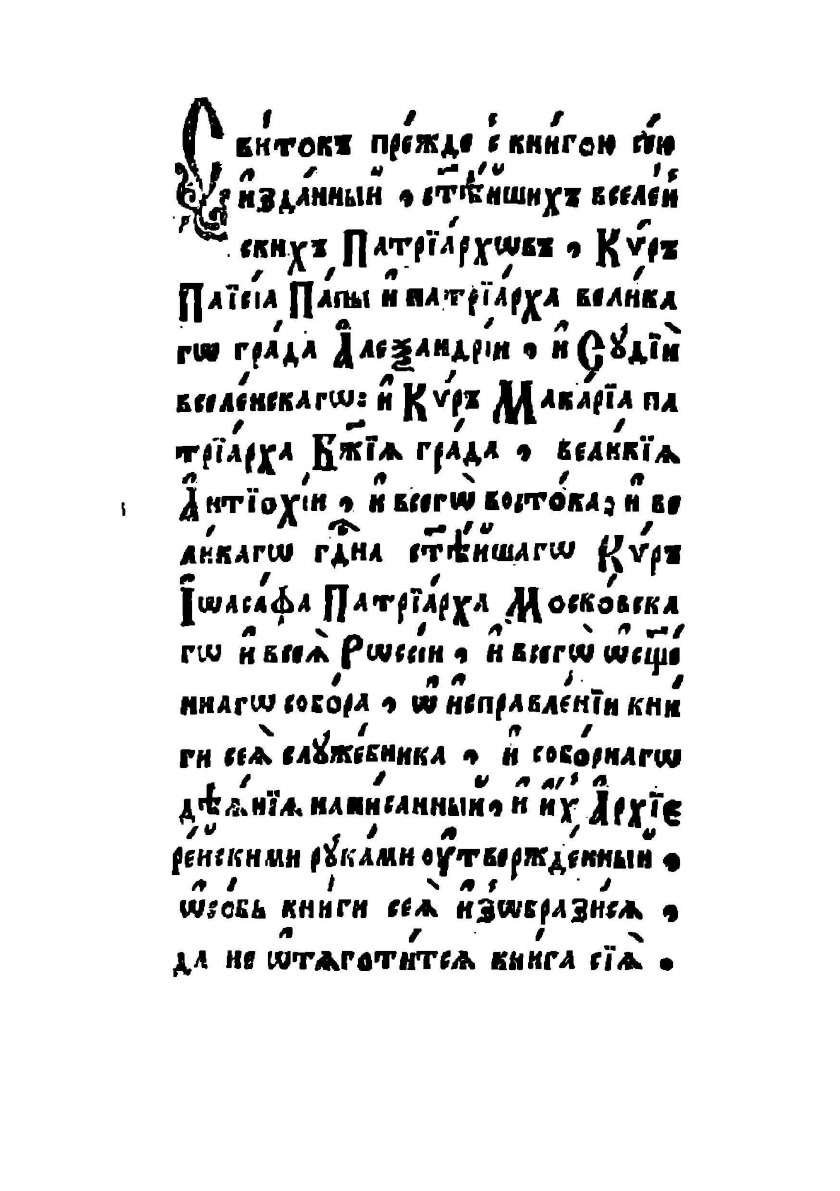 Сви́токъ пре́жде с̾ кни́гою се́ю
и҆зда́нный , ст҃ѣ́йшихъ вселе́н
скихъ Патрїа́рхѡвъ , Кѵ́ръ
Паї́сїа Па́пы и҆ патрїа́рха вели́ка
гѡ гра́да А҆леѯандрі́и , и҆ Сꙋдїи̂
вселе́нскагѡ: и҆ Кѵ́ръ Мака́рїа па
трїа́рха Бж҃їѧ гра́да , вели́кїѧ
А҆нтїохі́и , и҆ всегѡ̀ восто́ка; и҆ ве
ли́кагѡ гдⷭ҇на ст҃ѣ́йшагѡ Кѵ́ръ
І҆ѡаса́фа Патрїа́рха Моско́вска
гѡ и҆ всеѧ̀ Рѡссі́и , и҆ всегѡ̀ ѡ҆сщ҃е́
ннагѡ собо́ра , ѡ҆ и҆справле́нїи кни́
ги сеѧ̀ слꙋже́бника , и҆ собо́рнагѡ
дѣѧ́нїѧ напи́санный, и҆ и҆́хъ А҆рхїе
ре́йскими рꙋка́ми ᲂу҆твержде́нный ,
ѡ҆со́бь кни́ги сеѧ̀ и҆з̾ѡбрази́сѧ ,
да не ѡ҆тѧготи́тсѧ кни́га сїѧ̀ .